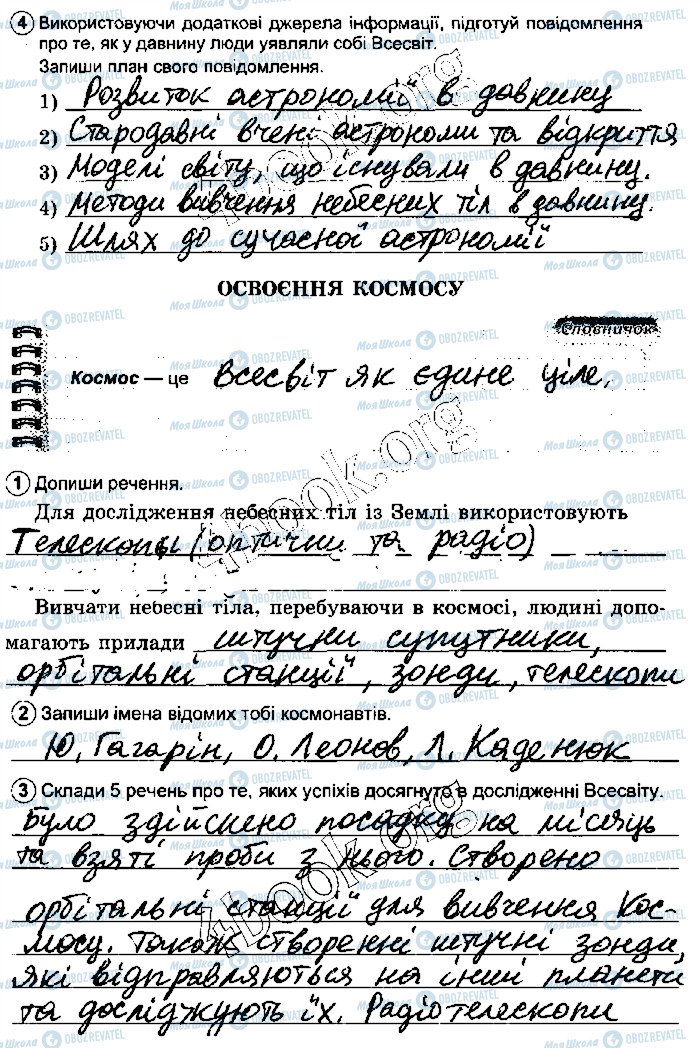 4 Використовуючи додаткові джерела інформації, підготуй повідомлення
про те, як у давнину люди уявляли собі Всесвіт.
Запиши план свого повідомлення.
1) Розвиток астрономії в давнину
2) Стародавні вчені астрономи та відкриття
3) Моделі світу, що існували в давнину.
4) Методи вивчення небесних тіл в давнину.
5) Шлях до сучасної астрономії
ОСВОЄННЯ КОСМОСУ
Словничок
Космос — це Всесвіт як єдине ціле.
1 Допиши речення.
Для дослідження небесних тіл із Землі використовують
Телескопи (оптични та радіо)
Вивчати небесні тіла, перебуваючи в космосі, людині допо-
магають прилади штучни супутники,
орбітальні станції, зонди, телескопи
2 Запиши імена відомих тобі космонавтів.
Ю. Гагарін, О. Леонов, Л. Каденюк
3 Склади 5 речень про те, яких успіхів досягнуто в дослідженні Всесвіту.
Було здійснено посадку на місяць
та взяті проби з нього. Створено
орбітальні станції для вивчення Кос-
мосу. Також створенні штучні зонди,
які відправляються на інші планети
та досліджують їх. Радіотелескопи
4book.org
МояШкола OBOZREVATEL